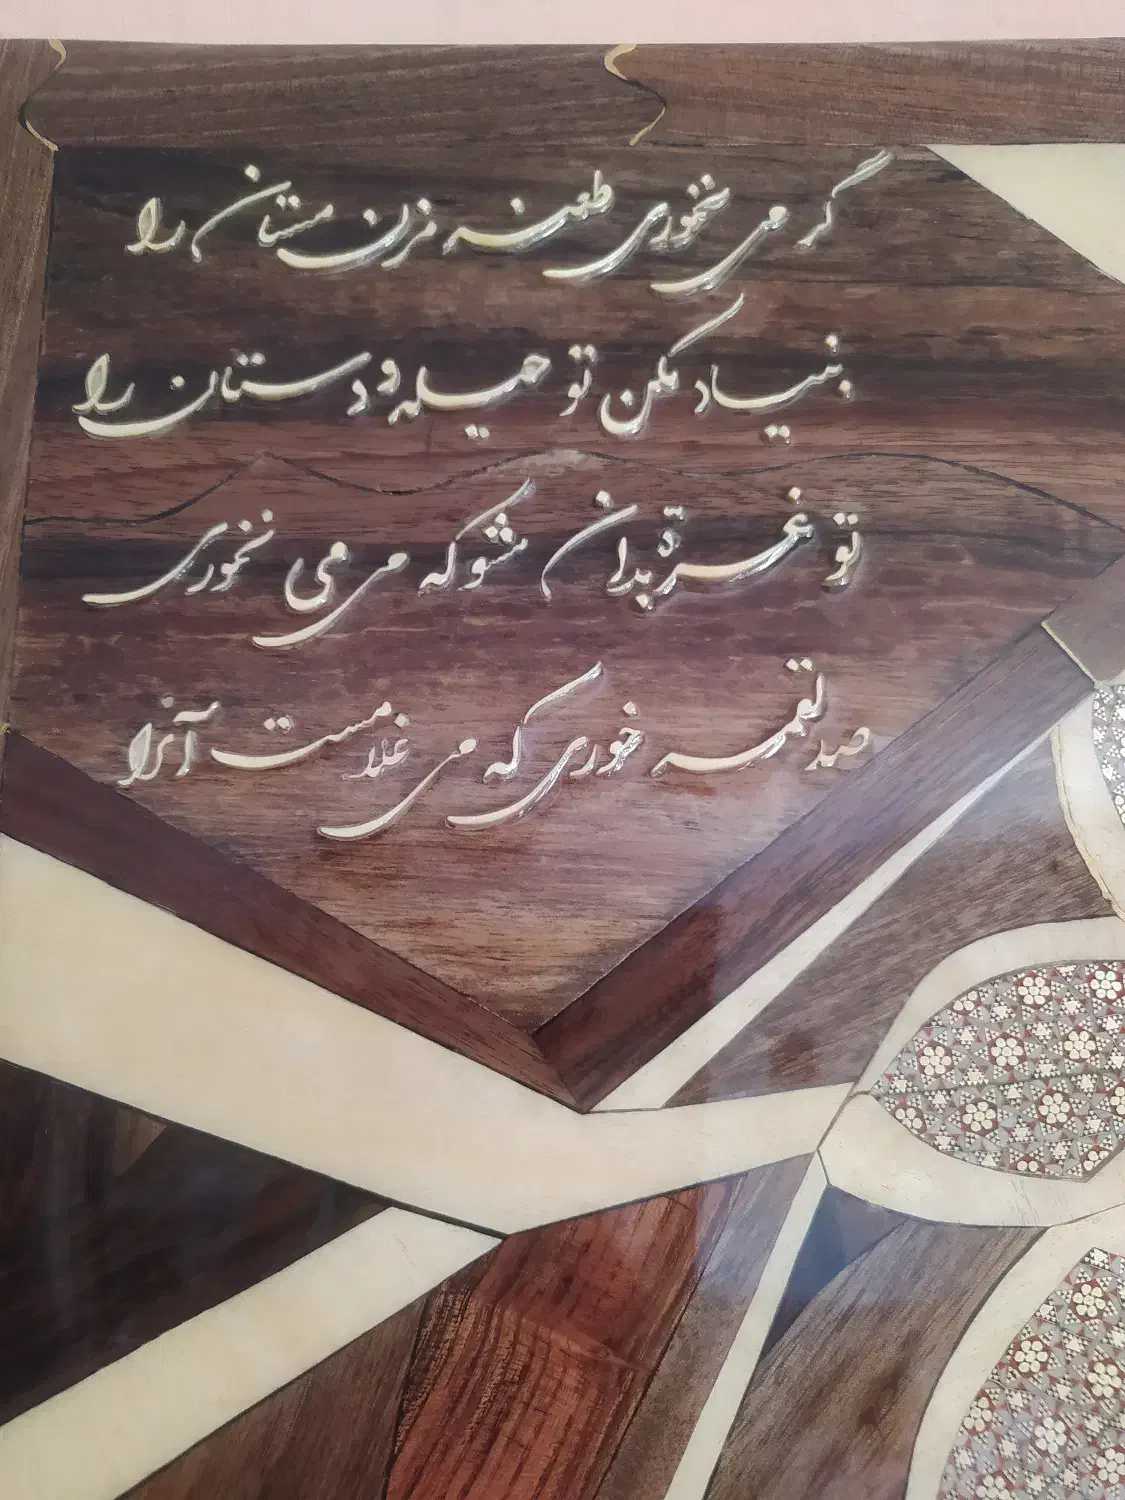 گر می نخوری طعنه مزن مستان را
بنیاد مکن تو حیله و دستان را
تو غره بدان مشو که می می نخوری
صد لقمه خوری که می غلامست آنرا